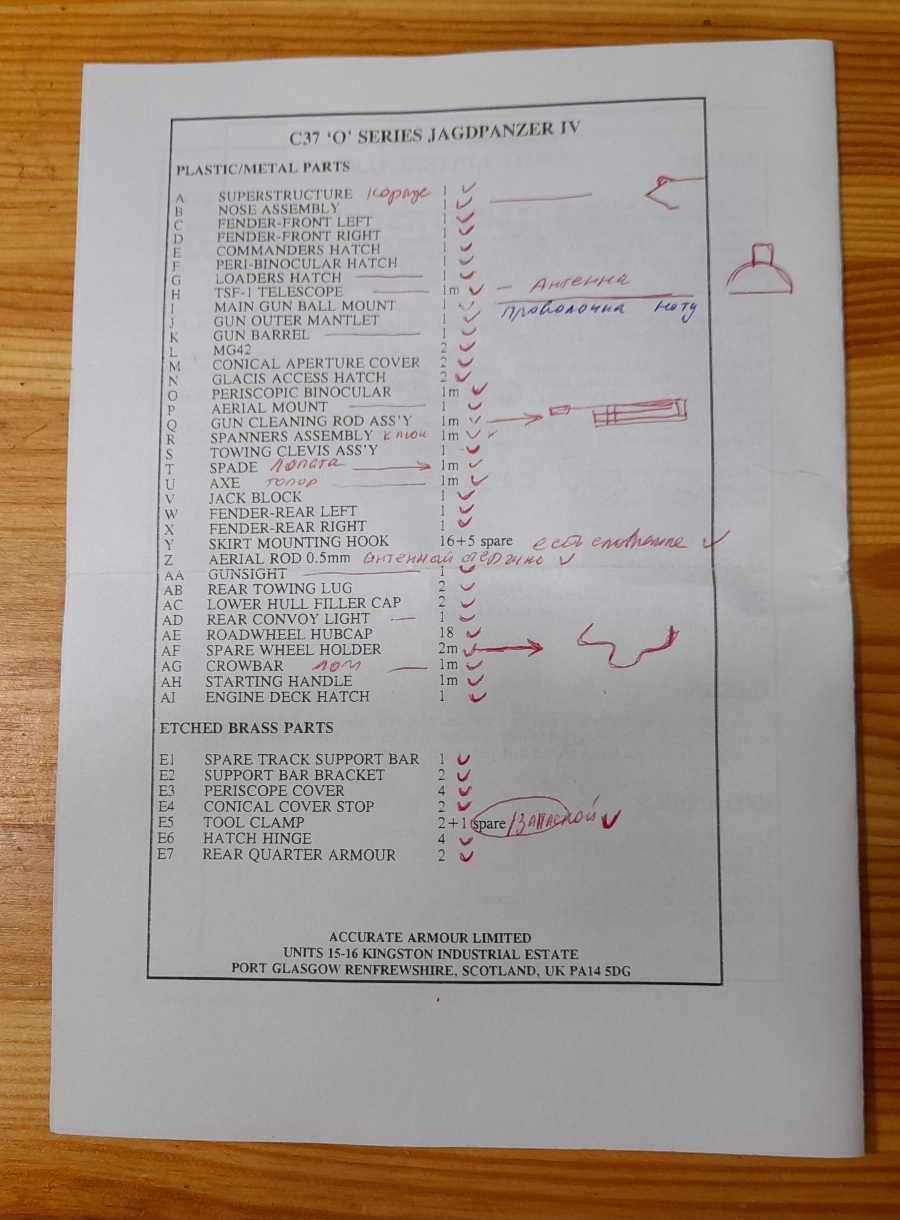 C37 ‘O’ SERIES JAGDPANZER IV
PLASTIC/METAL PARTS
A SUPERSTRUCTURE 1
B NOSE ASSEMBLY 1
C FENDER-FRONT LEFT 1
D FENDER-FRONT RIGHT 1
E COMMANDERS HATCH 1
F PERI-BINOCULAR HATCH 1
G LOADERS HATCH 1
H TSF-1 TELESCOPE 1m – Антенна
I MAIN GUN BALL MOUNT 1 проволочка
J GUN OUTER MANTLET 1
K GUN BARREL 1
L MG42 2
M CONICAL APERTURE COVER 2
N GLACIS ACCESS HATCH 2
O PERISCOPIC BINOCULAR 1m
P AERIAL MOUNT 1
Q GUN CLEANING ROD ASS'Y 1m
R SPANNERS ASSEMBLY ключи 1m
S TOWING CLEVIS ASS'Y 1
T SPADE лопата 1m
U AXE топор 1m
V JACK BLOCK 1
W FENDER-REAR LEFT 1
X FENDER-REAR RIGHT 1
Y SKIRT MOUNTING HOOK 16+5 spare есть
Z AERIAL ROD 0.5mm антенный
AA GUNSIGHT 1
AB REAR TOWING LUG 2
AC LOWER HULL FILLER CAP 2
AD REAR CONVOY LIGHT 1
AE ROADWHEEL HUBCAP 18
AF SPARE WHEEL HOLDER 2m
AG CROWBAR лом 1m
AH STARTING HANDLE 1m
AI ENGINE DECK HATCH 1
ETCHED BRASS PARTS
E1 SPARE TRACK SUPPORT BAR 1
E2 SUPPORT BAR BRACKET 2
E3 PERISCOPE COVER 4
E4 CONICAL COVER STOP 2
E5 TOOL CLAMP 2+1 spare/запасной
E6 HATCH HINGE 4
E7 REAR QUARTER ARMOUR 2
ACCURATE ARMOUR LIMITED
UNITS 15-16 KINGSTON INDUSTRIAL ESTATE
PORT GLASGOW RENFREWSHIRE, SCOTLAND, UK PA14 5DG